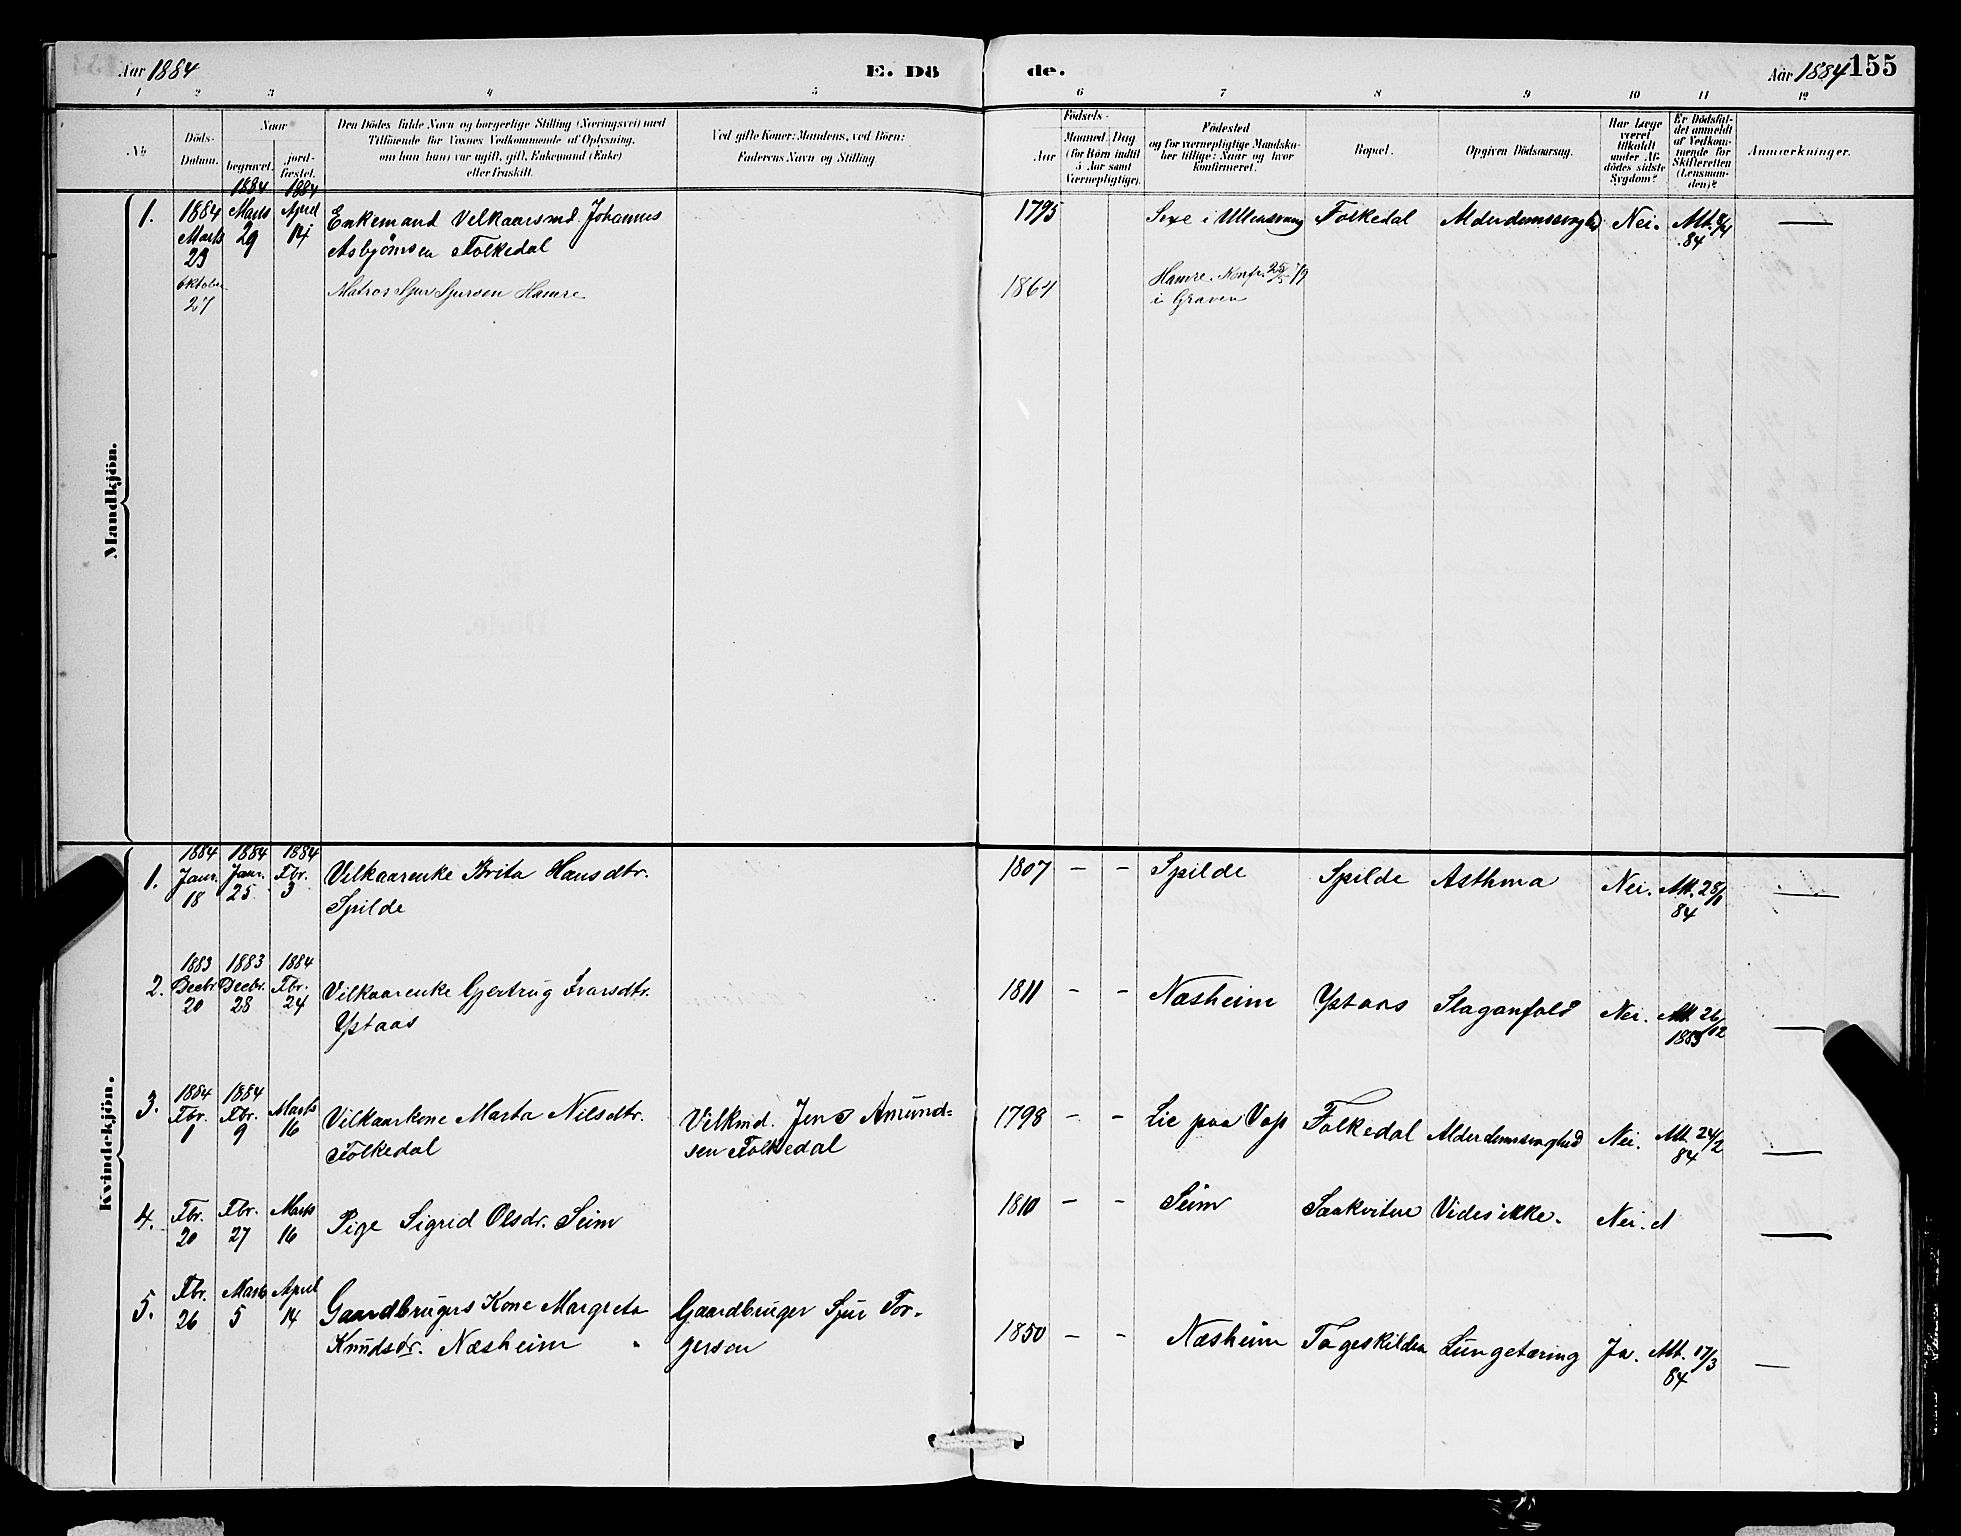 Aar 1884
E. Dö
de.
Aar 1884 155
1 2 3 4 5 6 7 8 9 10 11 12
No.
Döds-
Datum.
Naar
begravet.
jord-
fæstet.
Den Dödes fulde Navn og borgerlige Stilling (Næringsvei) med
Tilföiende for Voxnes Vedkommende af Oplysning,
om han (hun) var ugift, gift, Enkemand (Enke)
eller fraskilt.
Ved gifte Koner: Mandens, ved Börn:
Faderens Navn og Stilling.
Födsels-
Aar
Maaned. Dag
(for Börn indtil
5 Aar samt
Værnepligtige).
Födested
og for værnepligtige Mandskaber tillige: Naar og hvor
konfirmeret.
Bopæl.
Opgiven Dödsaarsag.
Har Læge
været
tilkaldt
under Afdödes sidste
Sygdom?
Er Dödsfaldet anmeldt
af Vedkommende for
Skifteretten
(Lensmanden)?
Anmærkninger.
Mandkjön.
1.
1884
Marts
23
1884
Marts
29
1884
April
14
Enkemand Velkaarsmd. Johannes
Asbjörnsen Folkedal
1795
Sexe i Ullensvang
Folkedal
Alderdomssvaghd
Nei.
Att. 8/4
84
—
Oktober
27
Matros Sjur Sjursen Hamre
1864
Hamre. Konfr. 25/5 79
i Graven
Kvindekjön.
1.
1884
Janr.
18
1884
Janr.
25
1884
Fbr.
3
Vilkaarenke Brita Hansdtr.
Spilde
1807 – –
Spilde
Spilde
Asthma
Nei.
Att. 28/1
84
—
2.
1883
Decbr
20
1883
Decbr.
28
1884
Fbr.
24
Vilkaarenke Gjertrug Ivarsdtr.
Ystaas
1811 – –
Næsheim
Ystaas
Slaganfald
Nei.
Att 26/12
1883
—
3.
1884
Fbr.
1
1884
Fbr.
9
Marts
16
Vilkaarkone Marta Nilsdtr.
Folkedal
Vilkmd. Jens Amund=
sen Folkedal
1798 – –
Lie paa Vos
Folkedal
Alderdomssvaghed
Nei.
Att. 24/2
84
—
4.
Fbr.
20
Fbr.
27
Marts
16
Pige Sigrid Olsdr. Seim
1810 – –
Seim
Saakvitne
Vides ikke.
Nei.
—
5.
Fbr.
26
Marts
5
April
14
Gaardbrugers Kone Margreta
Knudsdr. Næsheim
Gaardbruger Sjur Tor-
gersen
1850 – –
Næsheim
Lungetæring
Ja.
Att. 17/3
84
—